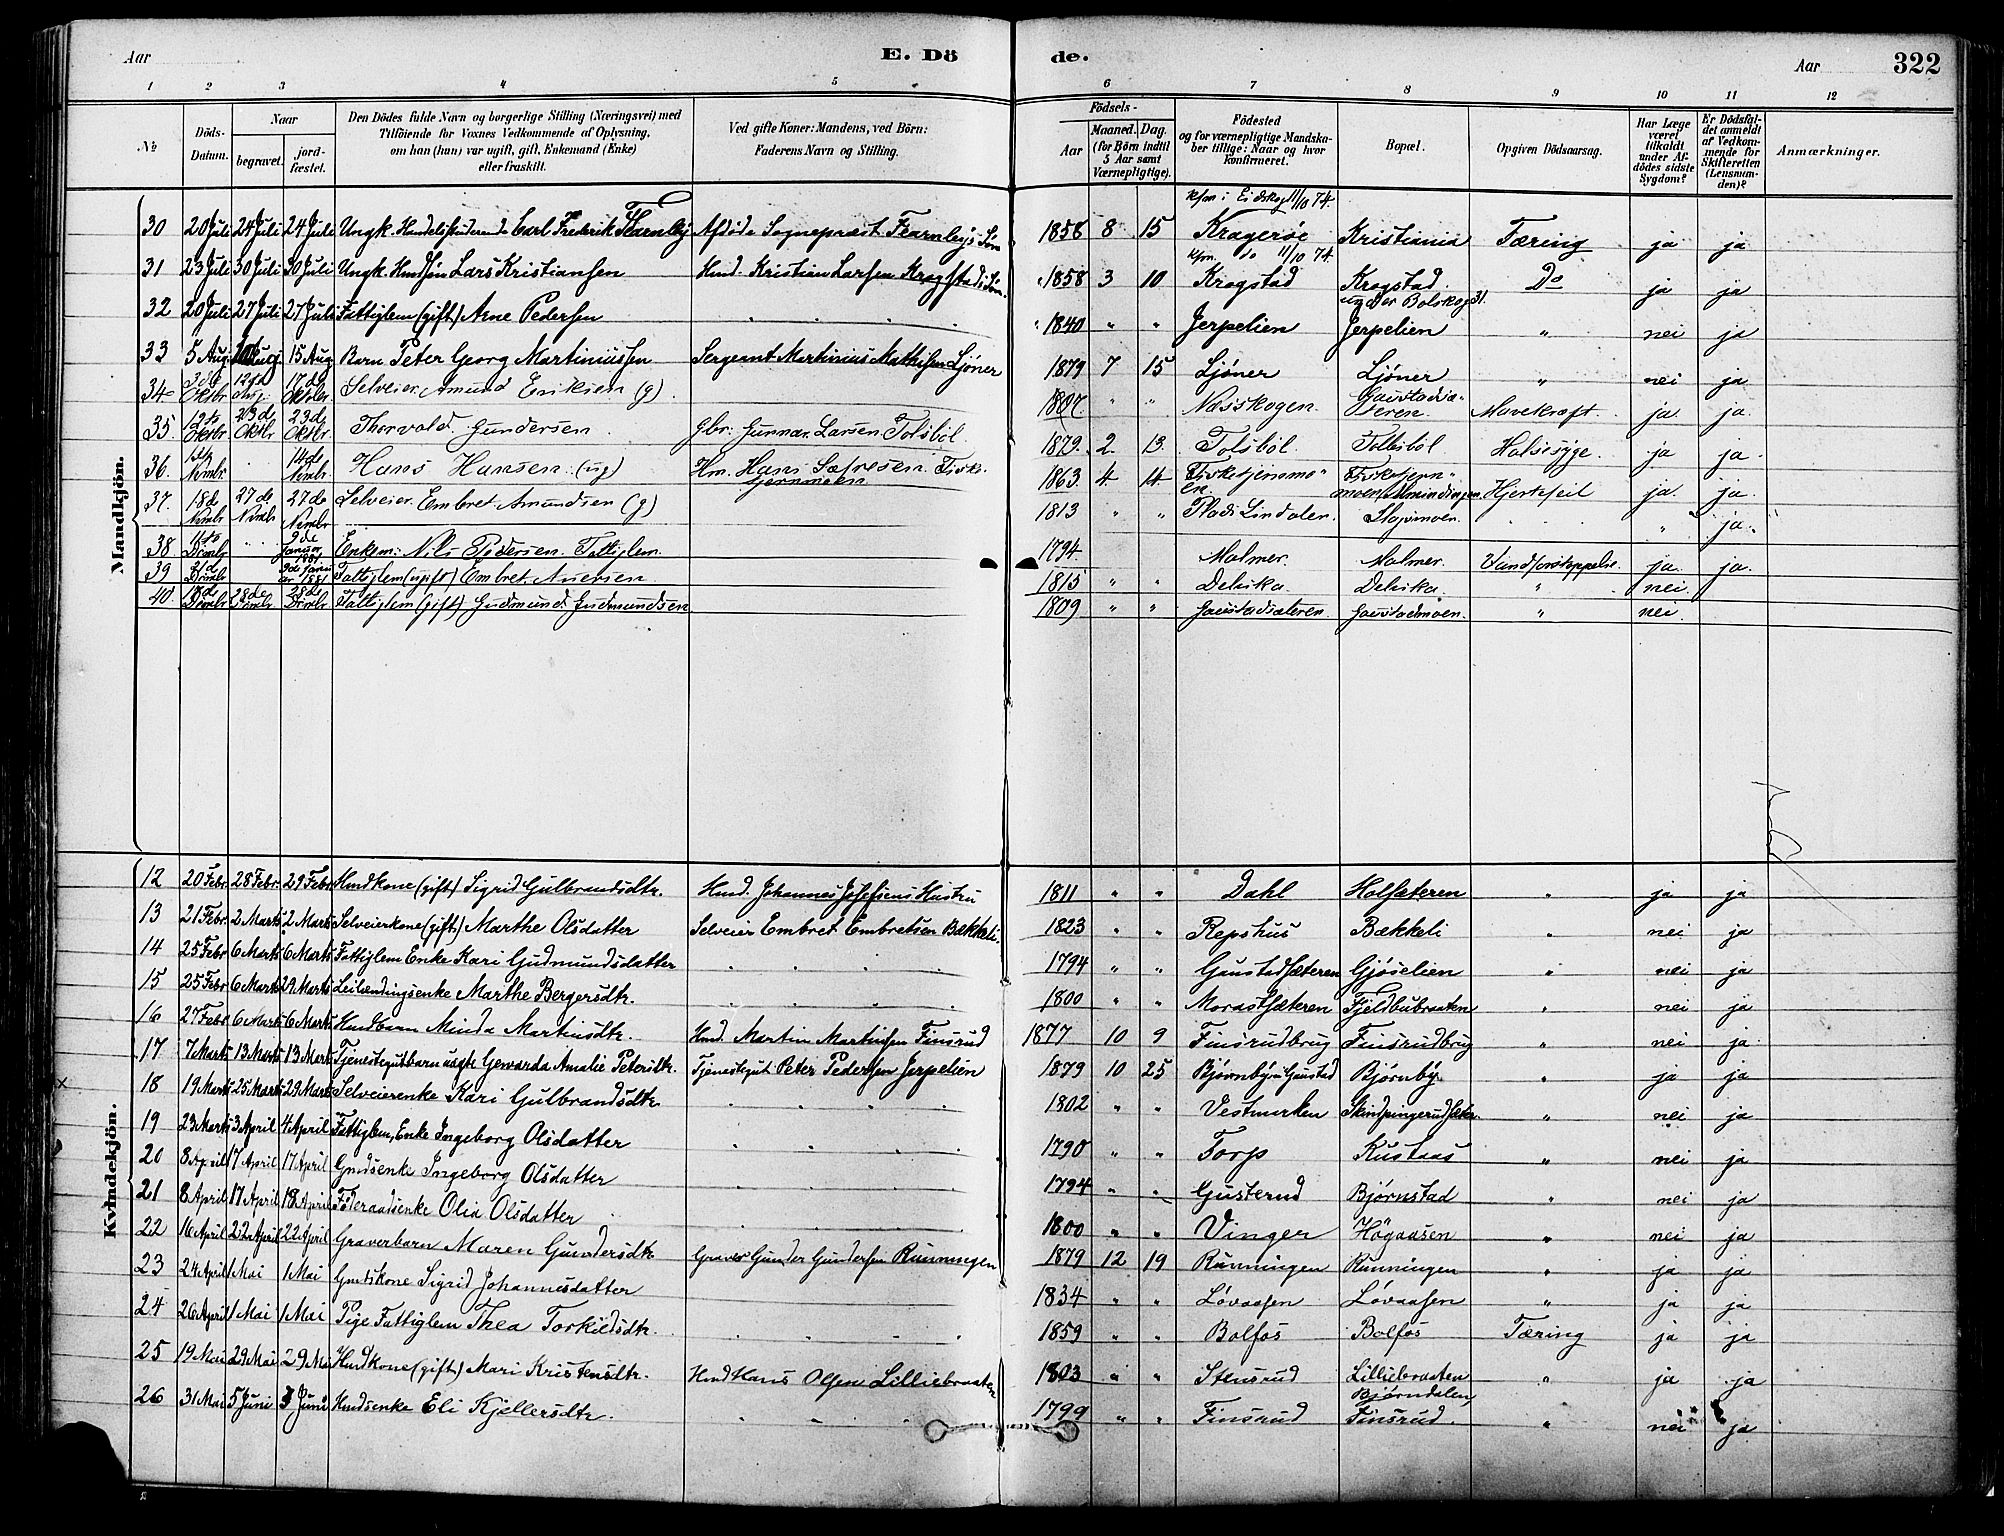 Aar E. Dö de. Aar 322
1 2 3 4 5 6 7 8 9 10 11 12
No Döds-Datum. Naar begravet. jordfæstet. Den Dödes fulde Navn og borgerlige Stilling (Næringsvei) med Tilföiende for Voxnes Vedkommende af Oplysning, om han (hun) var ugift, gift, Enkemand (Enke) eller fraskilt. Ved gifte Koner: Mandens, ved Börn: Faderens Navn og Stilling. Födsels- Aar Maaned. Dag. (for Börn indtil 5 Aar samt Værnepligtige). Födested og for værnepligtige Mandskaber tillige: Naar og hvor Konfirmeret. Bopæl. Opgiven Dödsaarsag. Har Læge været tilkaldt under Afdödes sidste Sygdom? Er Dödsfaldet anmeldt af Vedkommende for Skifteretten (Lensmanden)? Anmærkninger.
Mandkjön.
kfm i Eidskog 11/10 74.
30 20 Juli 24 Juli 24 Juli Ungk. Handelsstuderende Carl Frederik Fearnley Afdöde Sognepræst Fearnley's Søn 1858 8 15 Kragerøe Kristiania Tæring ja ja
kfm. do 11/10 74.
31 23 Juli 30 Juli 30 Juli Ungk. Husmdsøn Lars Kristiansen Husmd. Kristian Larsen Krogstads Søn. 1858 3 10 Krogstad Krogstad Do ja ja
under Bolskog 31.
32 20 Juli 27 Juli 27 Juli Fattiglem (gift) Arne Pedersen " " " 1840 " " Jerpelien Jerpelien " nei ja
33 5 Aug. 10 Aug 15 Aug Barn Peter Georg Martiniussen Sergeant Martinius Mathisen Ljöner 1879 7 15 Ljöner Ljöner " nei ja
34 3de Oktbr 12te 17de Oktbr Selveier Amund Eriksen (g) 1807. " " Næsskogen. Gaustadsæteren. Mavekræft. ja. ja.
35. 12te Oktbr 23de Oktbr 23de Oktbr Thorvald Gundersen Gbr: Gunnar Larsen Tolsböl 1879. 2. 13. Tolsböl. Tolsböl Halssyge. ja ja.
36. Nvmbr. 14de Nvmbr Hans Hansen (ug) Hm. Hans Sætresen Fisktjernmoen 1863. 4 14. Fisketjernmoen Fisketjernmoen, Almindingen Hjertefeil ja. ja.
37. 18de Nvmbr 27de Nvmbr 27de Nvmbr Selveier Embret Amundsen (g) 1813 " " Plads Lindalen Slagsmoen. " ja.
38 11te Dcmbr 9de Januar 1881 Enkem: Nils Pedersen. Fattiglem. 1794. Malmer. Malmer. Vandforstoppelse ja. ja.
39 21de Dcmbr 9de Januar 1881 Fattiglem (ugift) Embret Aversen 1815 " " Delvika Delvika. " nei.
40 18de Dcmbr 28de Dcmbr 28de Dcmbr Fattiglem (gift) Gudmund Gudmundsen 1809 " " Gaustadsæteren. Gaustadmoen. " nei
Kvindekjön.
12 20 Febr 28 Febr. 29 Febr Husmdkone (gift) Sigrid Gulbrandsdtr. Husmd. Johannes Josefsens Hustru 1811 " " Dahl Holsæteren " ja ja
13 21 Febr. 2 Marts 2 Marts Selveierkone (gift.) Marthe Olsdatter Selveier Embret Embretsen Bækkeli. 1823 " " Repshus Bækkeli " nei ja
14 25 Febr 6 Marts 6 Marts Fattiglem Enke Kari Gudmundsdatter " " " 1794 " " Gaustadsæteren Gjöselien " nei ja
15 25 Febr 6 Marts 29 Marts Leilændingsenke Marthe Bergersdtr. " " " 1800 " " Morastsæteren Fjeldbubraaten " nei ja
16 27 Febr 6 Marts 6 Marts Husmdbarn Minda Martinsdtr. Husmd. Martin Martinsen Finsrud 1877 10 9 Finsrudbrug Finsrudbrug " nei ja
17 7 Marts 13 Marts 13 Marts Tjenestegutbarn uægte Gewarda Amalie Petersdtr. Tjenestegut Peter Pedersen Jerpelien 1879 10 25 Björnby u. Gaustad Björnby " ja ja
18 19 Marts 25 Marts 29 Marts Selveierenke Kari Gulbrandsdtr " " " 1802 " " Vestmarken Skindpungerudsæter " nei ja
19 23 Marts 3 April 4 April Fattiglem, Enke Ingeborg Olsdatter " " " 1790 " " Torp Kustaas " nei ja
20 8 April 17 April 17 April Gmdsenke Ingeborg Olsdatter " " " 1794 " " Gusterud Björnstad " nei ja
21 8 April 17 April 18 April Föderaadsenke Olia Olsdatter " " " 1800 " " Vinger Högaasen " nei ja
22 16 April 22 April 22 April Graverbarn Maren Gundersdtr Graver Gunder Gundersen Runningen 1879 12 19 Runningen Runningen " ja ja
23 24 April 1 Mai 1 Mai Gmdskone Sigrid Johannesdatter 1834 " " Lövaasen Lövaasen " ja ja
24 26 April 1 Mai 1 Mai Pige Fattiglem Thea Torkildsdtr. " " " 1859 " " Bolfos Bolfos Tæring ja ja
25 19 Mai 29 Mai 29 Mai Husmdkone (gift) Mari Kristensdtr. Husmd Hans Olsen Lilliebraaten 1803 " " Stensrud Lilliebraaten " ja ja
Björndalen,
26 31 Mai 5 Juni 5 Juni Husmdsenke Eli Kjellersdtr. " " " 1799 " " Finsrud Finsrud. " nei ja